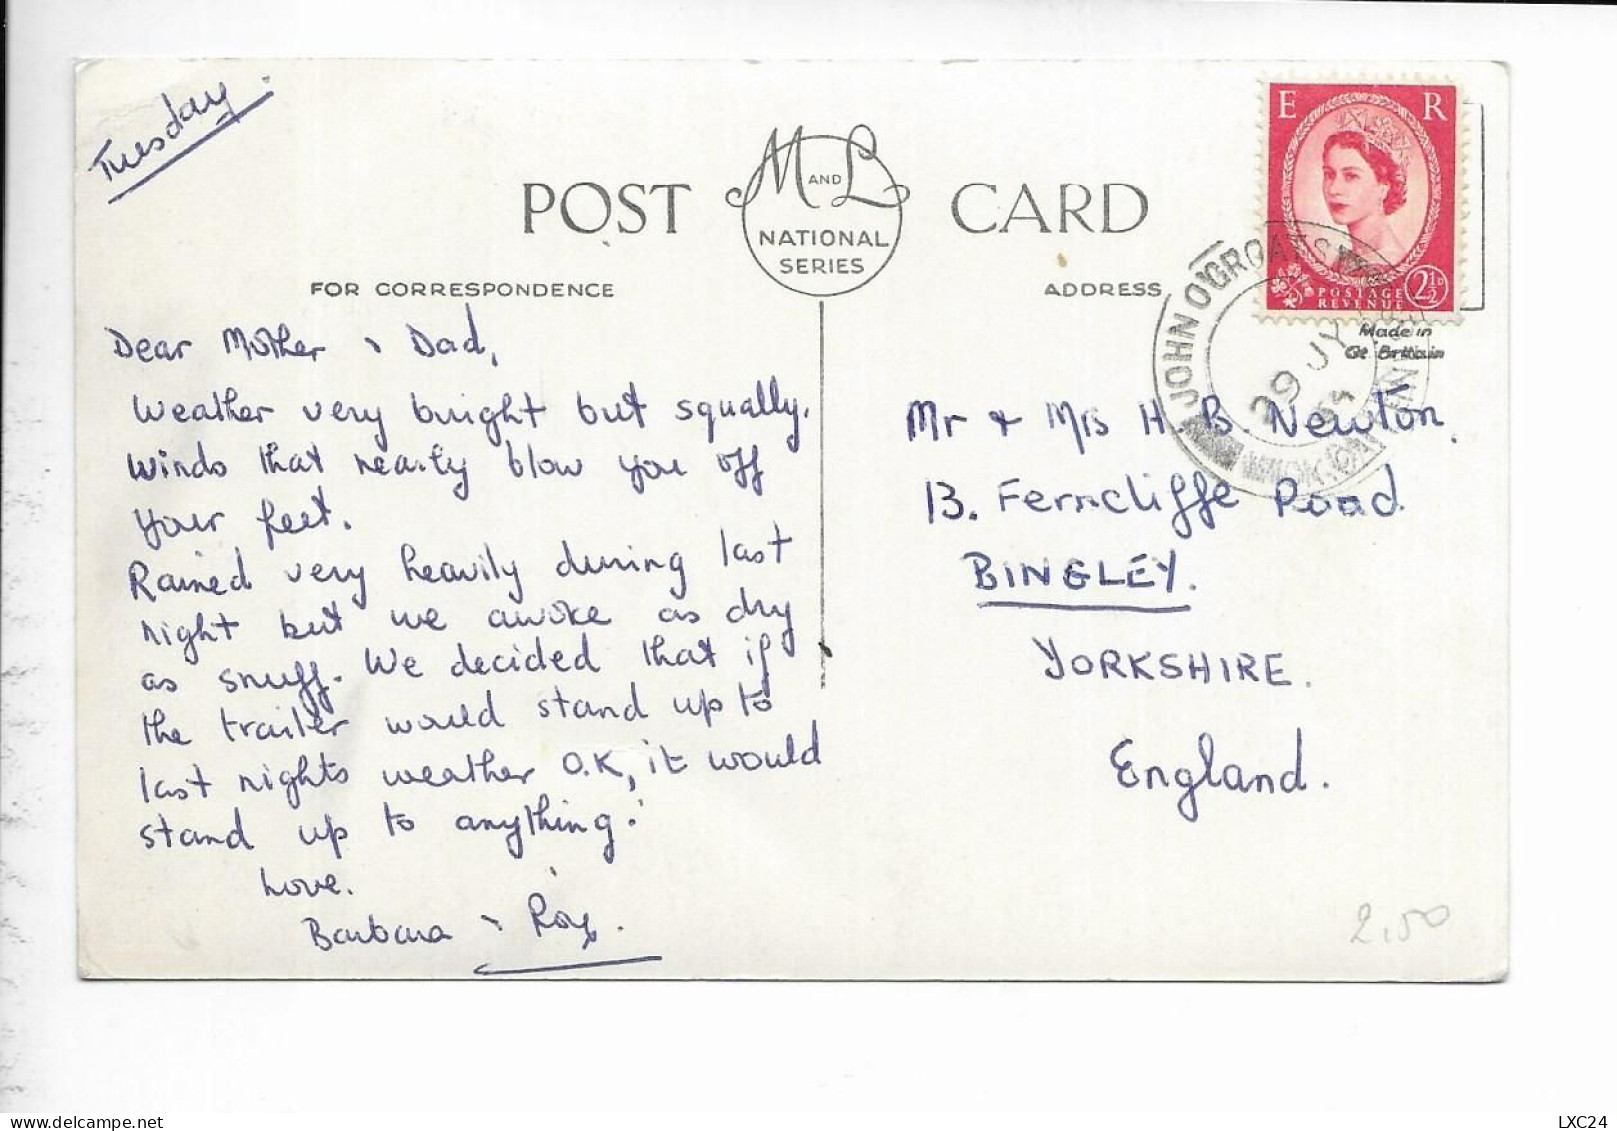 Tuesday.
POST CARD
M AND L
NATIONAL
SERIES
FOR CORRESPONDENCE
ADDRESS
E R
POSTAGE
REVENUE
2½D
Made in
Gt. Britain
JOHN O'GROATS
29 JY
WICK
Dear Mother & Dad,
Weather very bright but squally.
Winds that nearly blow you off
your feet.
Rained very heavily during last
night but we awoke as dry
as snuff. We decided that if
the trailer would stand up to
last nights weather O.K, it would
stand up to anything!
Love.
Barbara & Roy.
Mr & Mrs H. B. Newton,
13. Ferncliffe Road
BINGLEY.
YORKSHIRE.
England.
2,50
LXC24